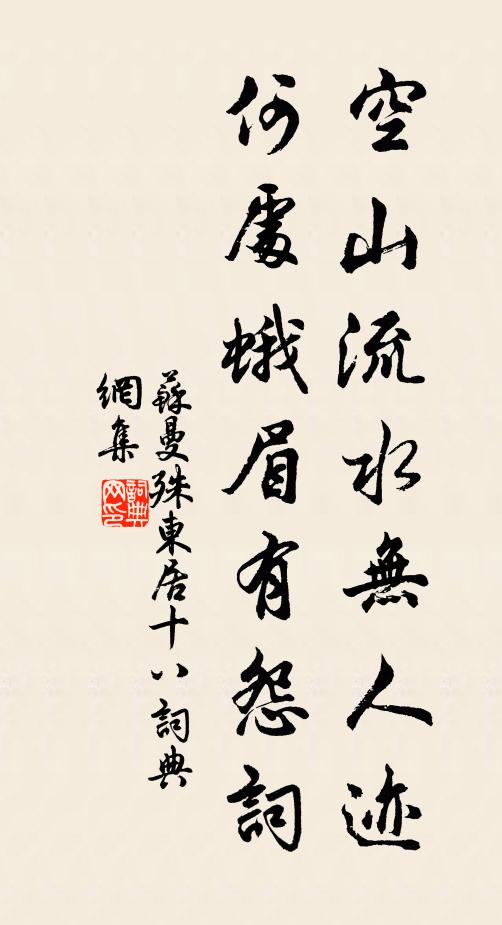 空山流水無人迹
何處蛾眉有怨詞
蘇曼殊東居十八詞典
網集
詞典
网印